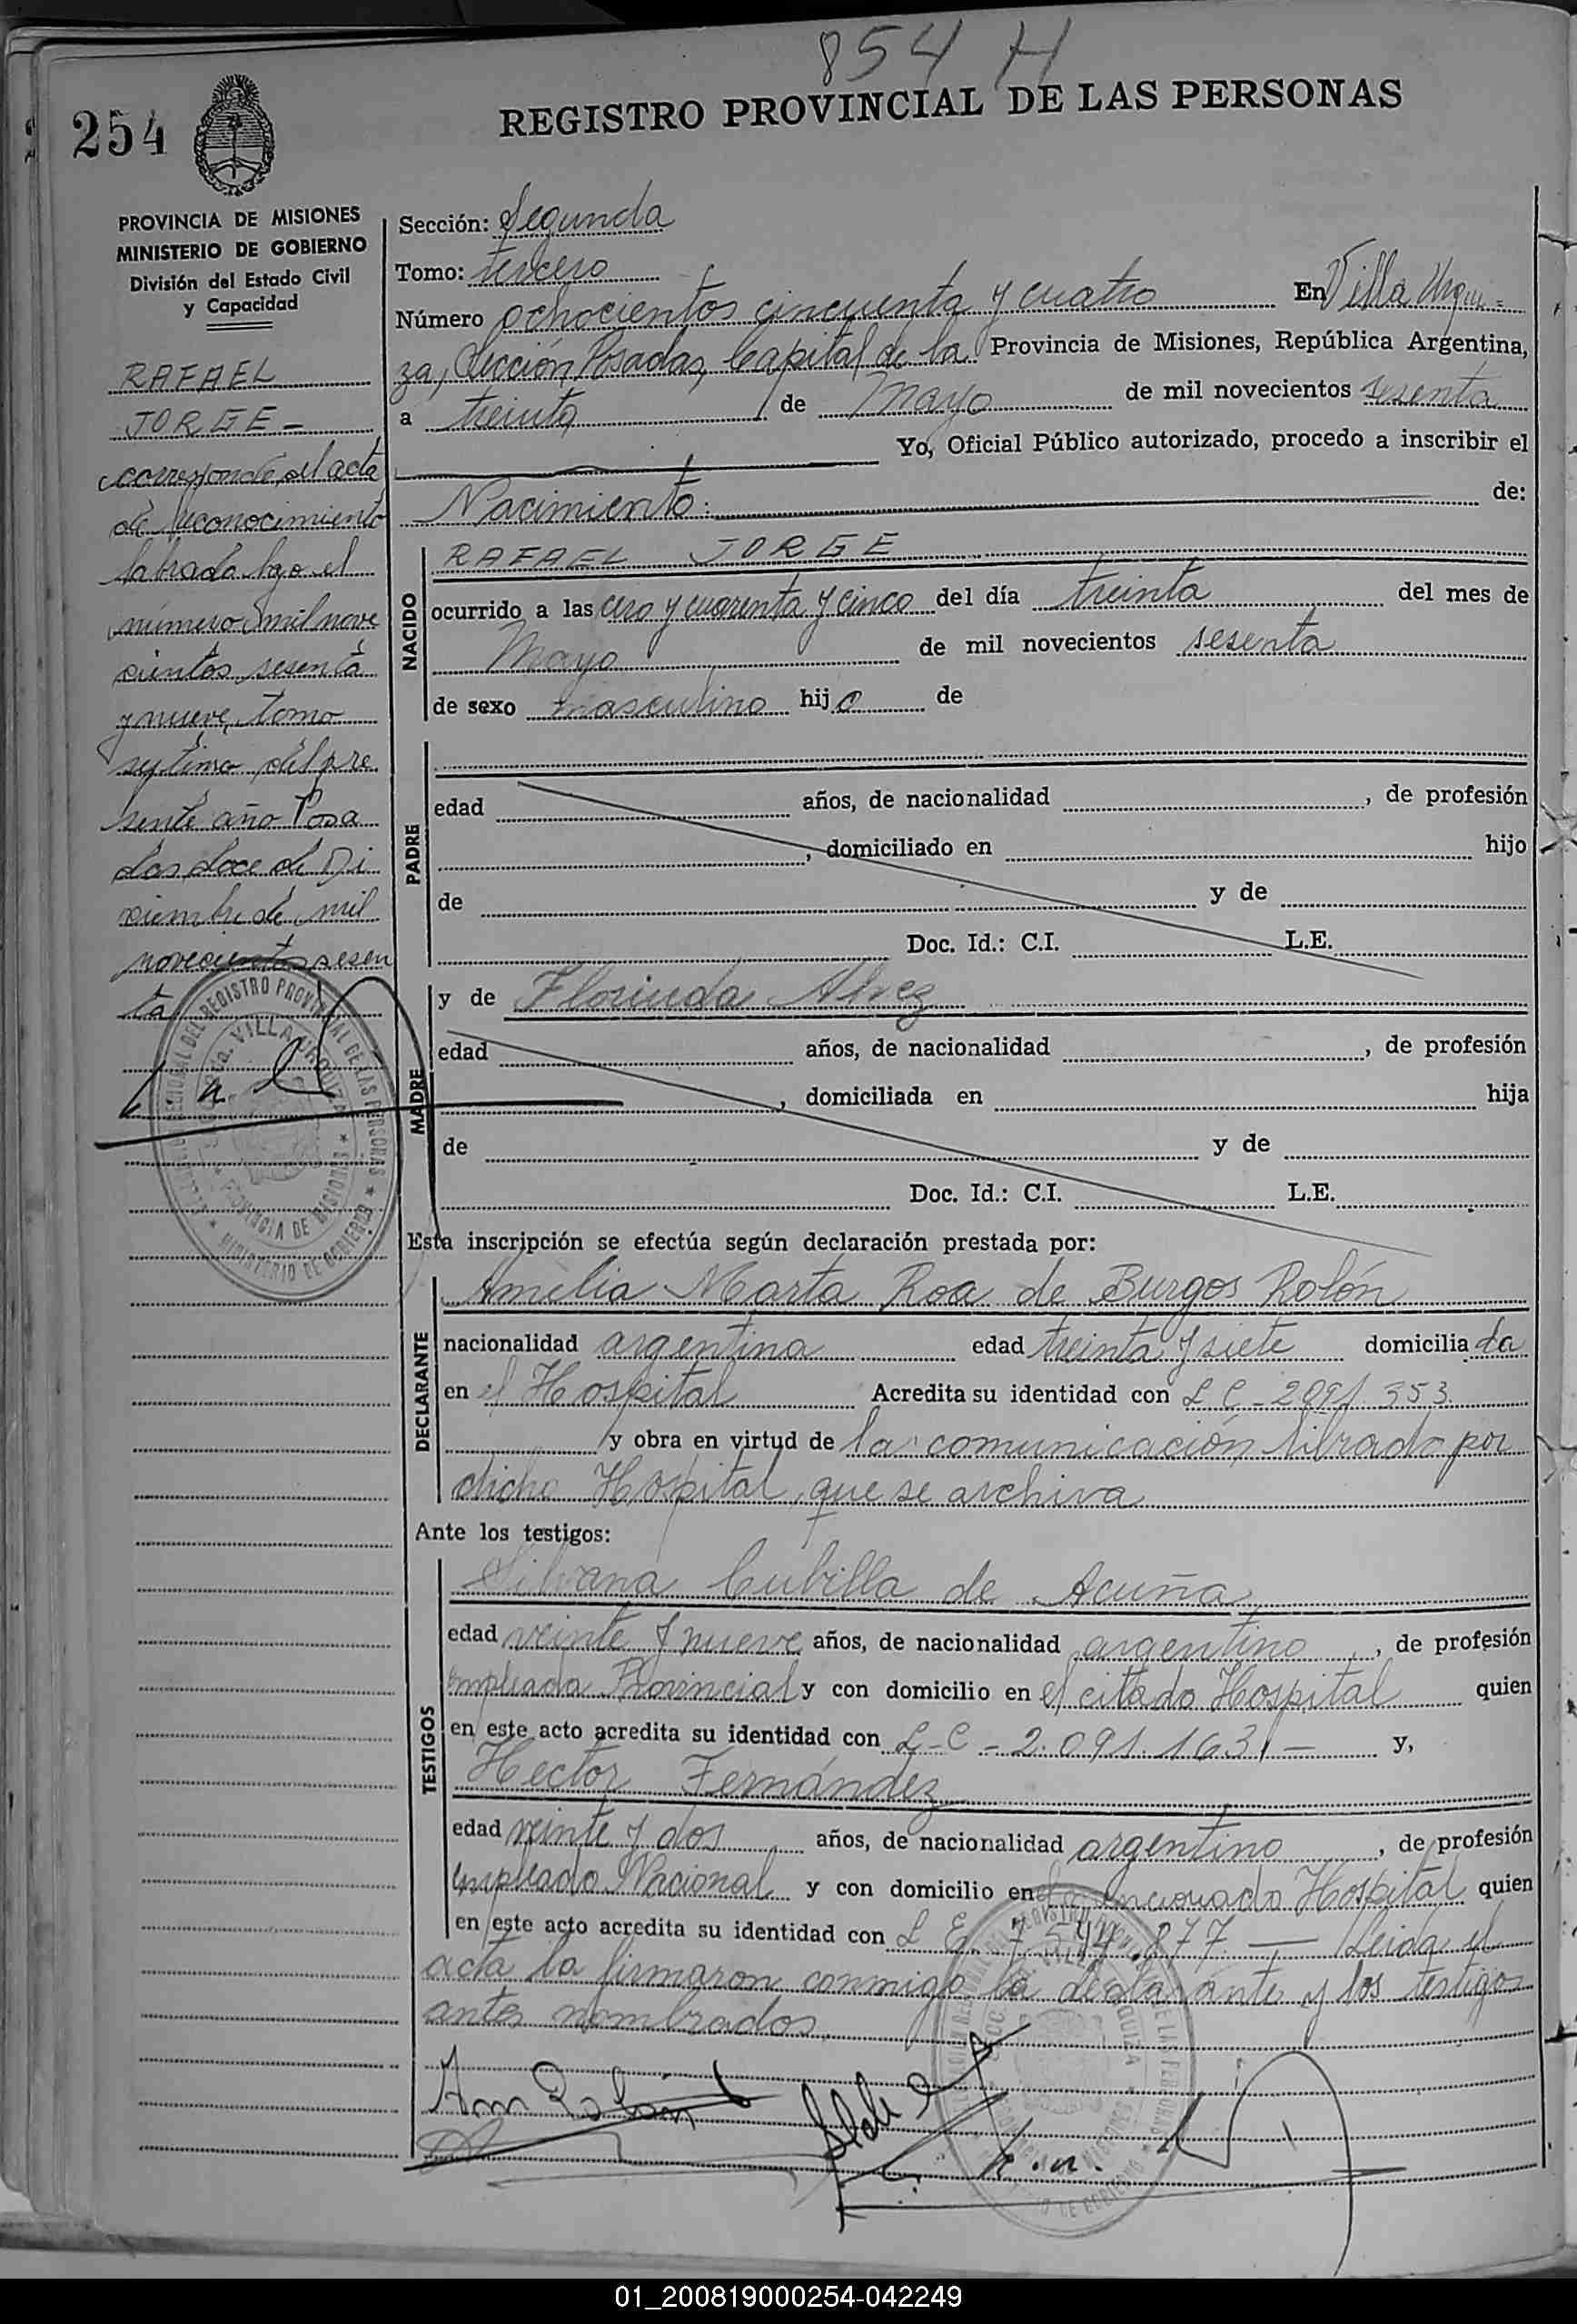 854 H
254
REGISTRO PROVINCIAL DE LAS PERSONAS
PROVINCIA DE MISIONES
MINISTERIO DE GOBIERNO
División del Estado Civil
y Capacidad
RAFAEL
JORGE -
corresponde al acta
de reconocimiento
labrada bajo el
número mil nove
cientos sesenta
y nueve, tomo
septimo del pre
sente año Posa
das doce de Di
ciembre de mil
novecientos sesen
ta
Sección: Segunda
Tomo: tercero
Número ochocientos cincuenta y cuatro En Villa Urqui=
za, Sección Posadas, Capital de la Provincia de Misiones, República Argentina,
a treinta de Mayo de mil novecientos sesenta
Yo, Oficial Público autorizado, procedo a inscribir el
Nacimiento: de:
NACIDO
RAFAEL JORGE
ocurrido a las cero y cuarenta y cinco del día treinta del mes de
Mayo de mil novecientos sesenta
de sexo masculino hijo de
PADRE
edad años, de nacionalidad , de profesión
, domiciliado en hijo
de y de
Doc. Id.: C.I. L.E.
MADRE
y de Florinda Alvez
edad años, de nacionalidad , de profesión
, domiciliada en hija
de y de
Doc. Id.: C.I. L.E.
Esta inscripción se efectúa según declaración prestada por:
DECLARANTE
Amelia Marta Roa de Burgos Rolón
nacionalidad argentina edad treinta y siete domiciliada
en el Hospital Acredita su identidad con L C - 2091.353.
y obra en virtud de la comunicación librado por
dicho Hospital, que se archiva
Ante los testigos:
TESTIGOS
Silvana Cubilla de Acuña
edad veinte y nueve años, de nacionalidad argentino, de profesión
empleada Provincial y con domicilio en el citado Hospital quien
en este acto acredita su identidad con L-C - 2.091.163.- y,
Hector Fernández
edad veinte y dos años, de nacionalidad argentino, de profesión
empleado Nacional y con domicilio en el mencionado Hospital quien
en este acto acredita su identidad con L E. 7.544.877. — Leida el
acta la firmaron conmigo la declarante y los testigos
antes nombrados.
01_200819000254-042249